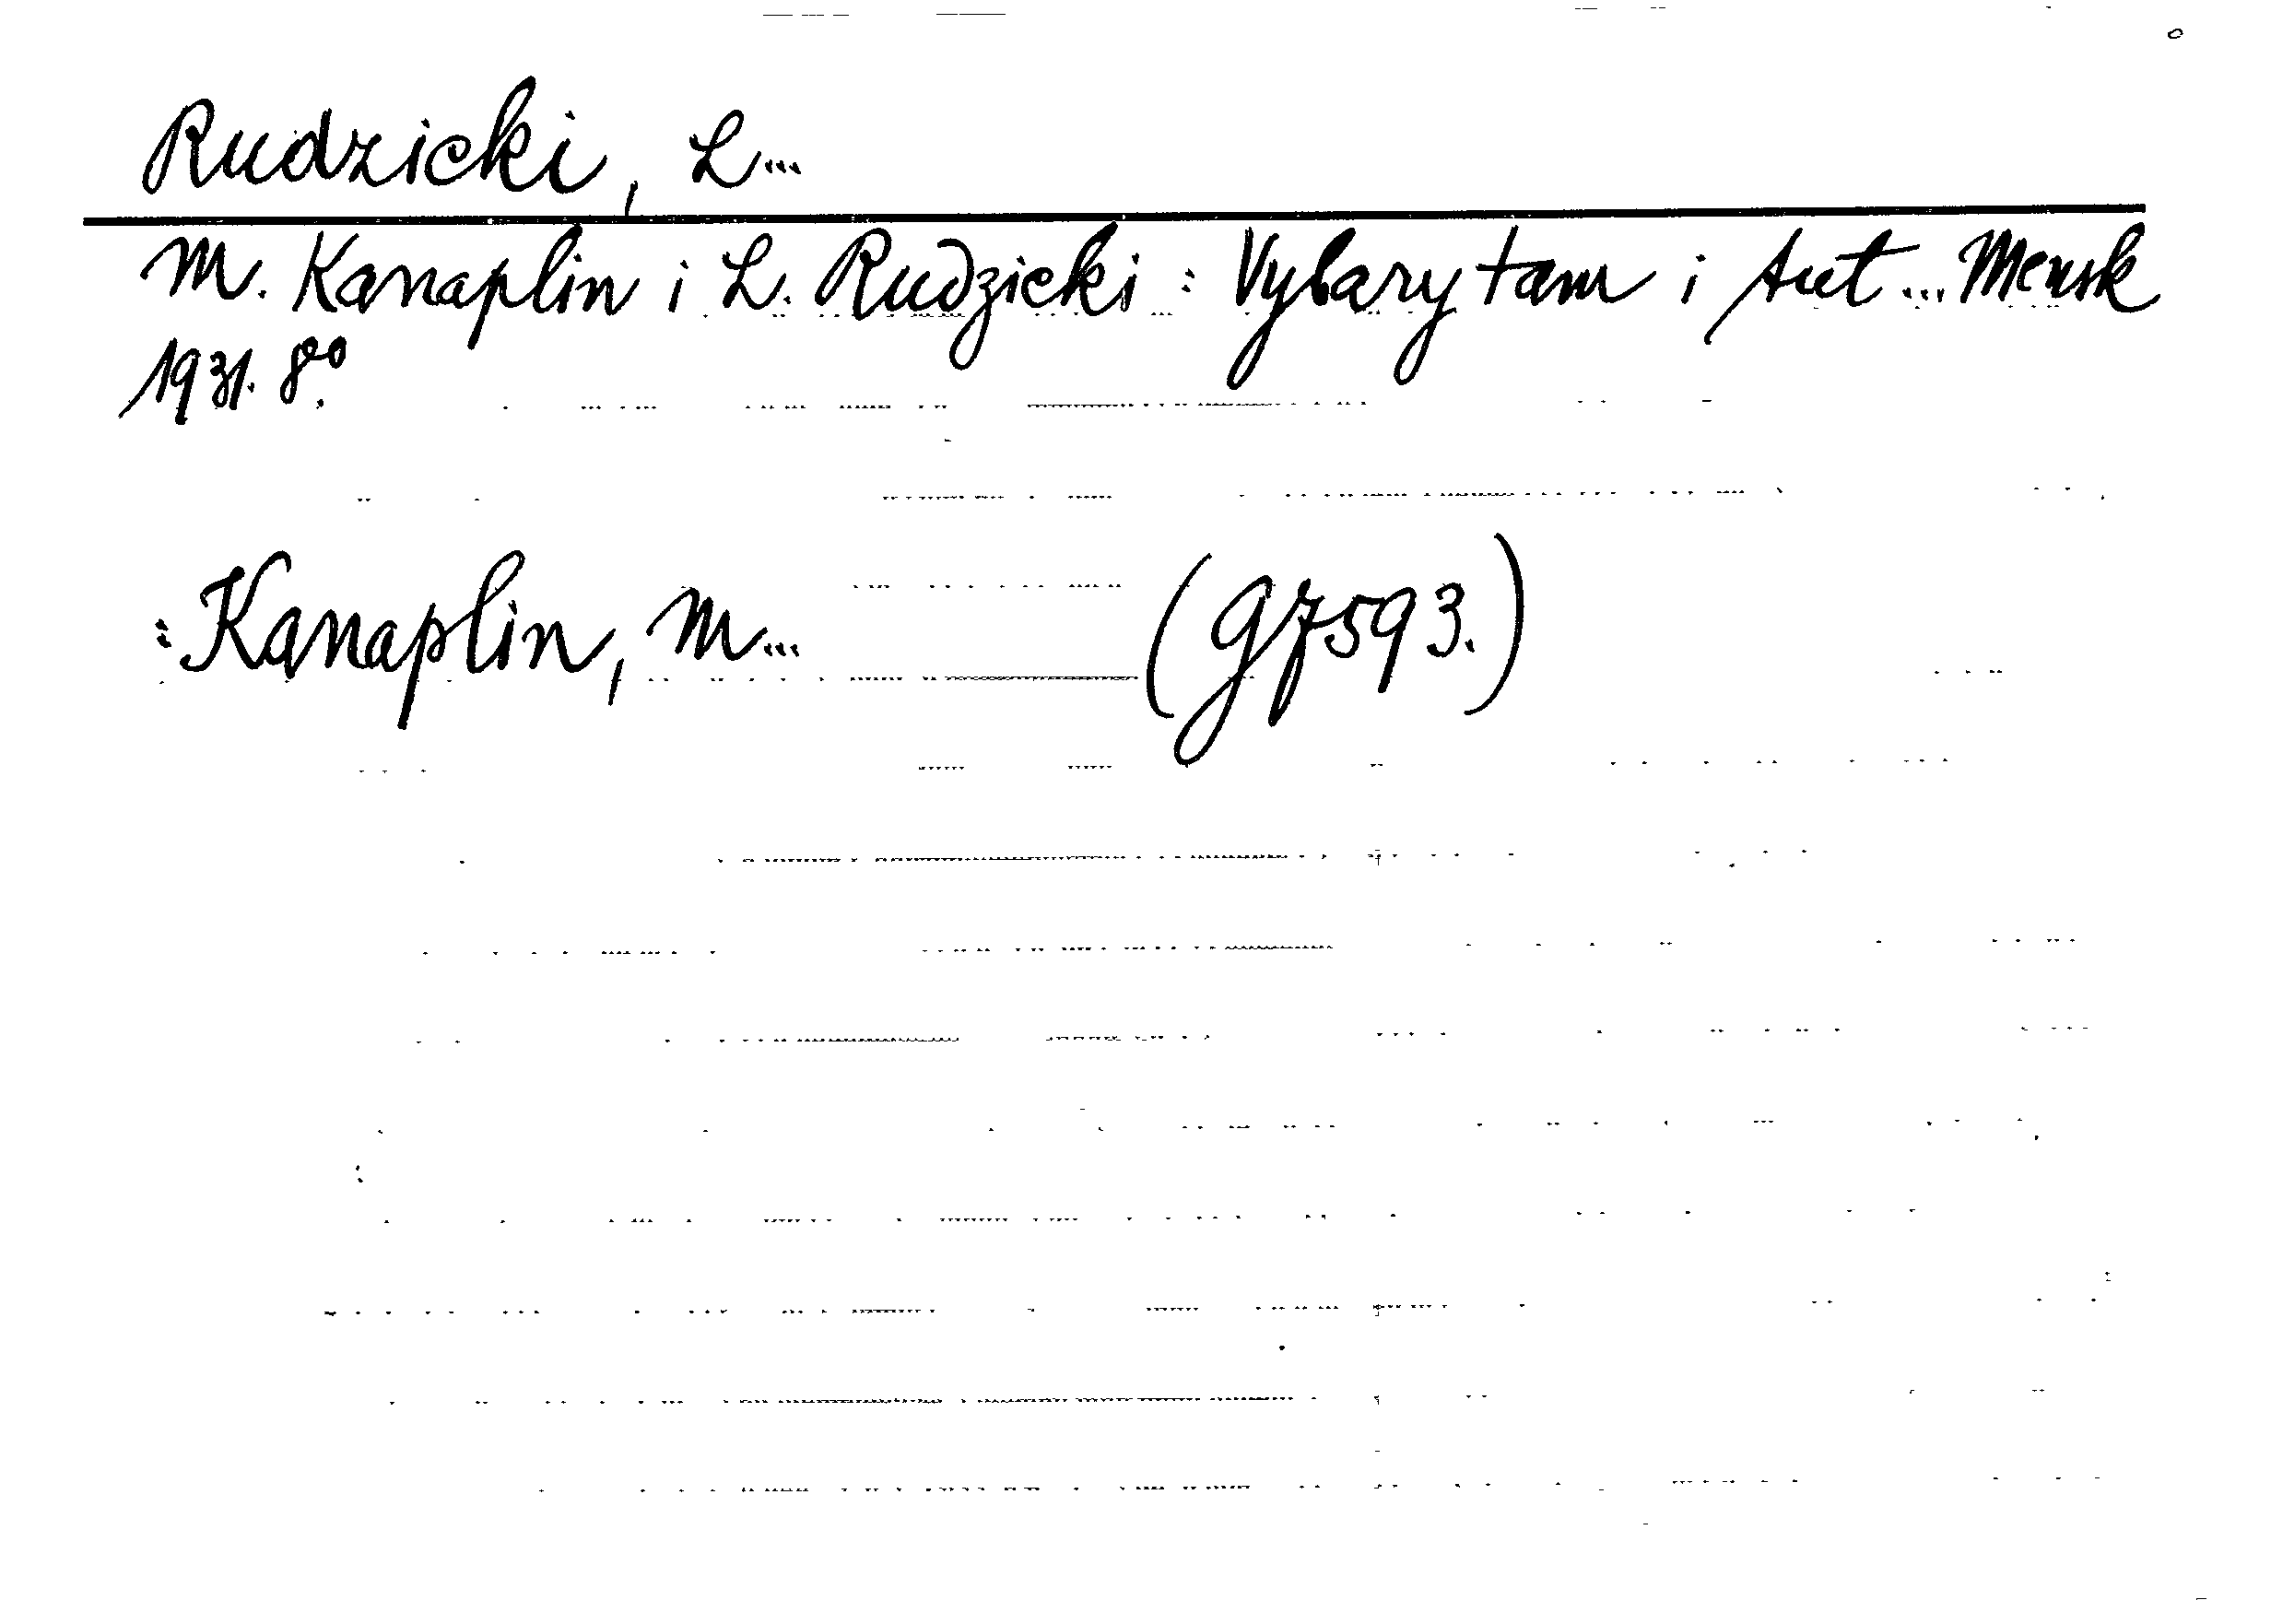 Rudzicki, L...
M. Kanaplin i L. Rudzicki : Vybary tam i tut ... Mensk
1931. 8°.
: Kanaplin, M... (g7593.)